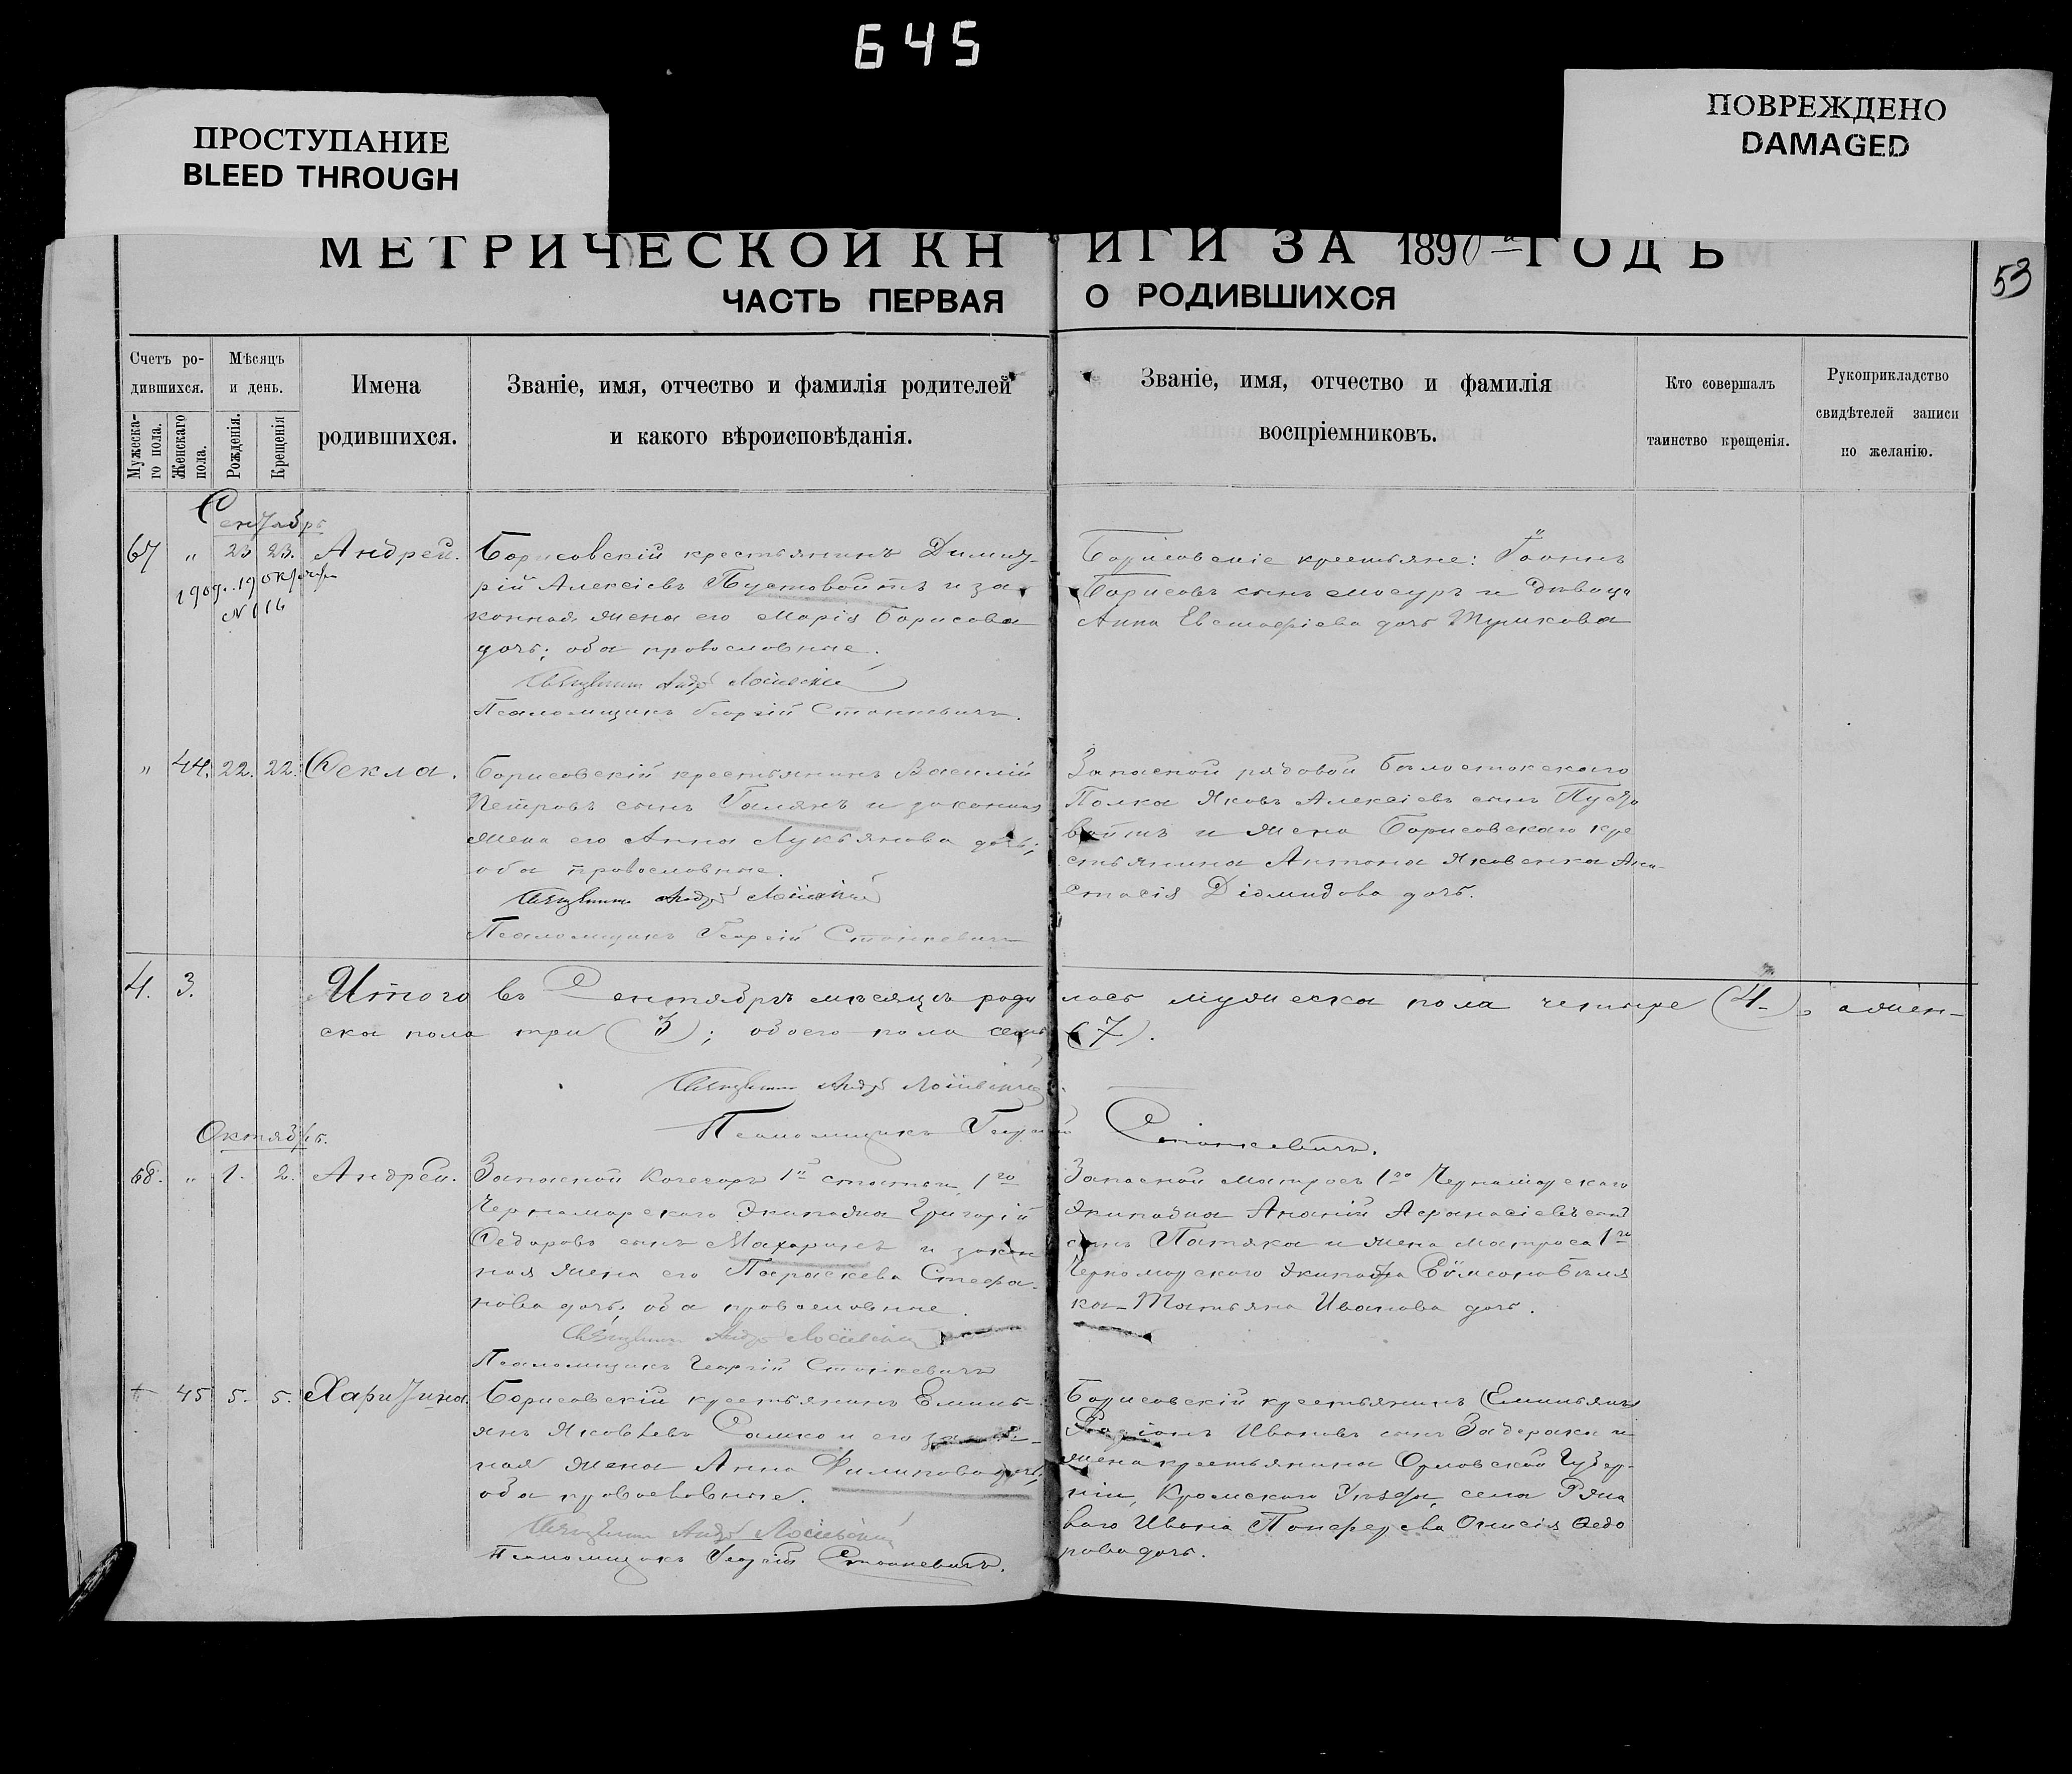 645
ПРОСТУПАНИЕ
BLEED THROUGH
ПОВРЕЖДЕНО
DAMAGED
МЕТРИЧЕСКОЙ КНИГИ ЗА 1890 ГОДЪ
53
ЧАСТЬ ПЕРВАЯ О РОДИВШИХСЯ
Счетъ ро-
дившихся.
Мужеска-
го пола.
Женскаго
пола.
Мѣсяцъ
и день.
Рожденія.
Крещенія
Имена
родившихся.
Званіе, имя, отчество и фамилія родителей
и какого вѣроисповѣданія.
Званіе, имя, отчество и фамилія
воспріемниковъ.
Кто совершалъ
таинство крещенія.
Рукоприкладство
свидѣтелей записи
по желанію.
Сентябрь
67 " 23 23. Андрей.
1909 г. 19 октября
№ 116
Борисовскій крестьянинъ Димит-
рій Алексіевъ Пустовойтъ и за-
конная жена его Марія Борисова
дочь; оба православные.
Псаломщикъ Георгій Станкевичъ.
Борисовскіе крестьяне: Іоаннъ
Борисовъ сынъ и дѣвица
Анна Евстафіева дочь
" 44. 22. 22. Ѳекла.
Борисовскій крестьянинъ Василій
Петровъ сынъ Галянъ и законная
жена его Анна Лукьянова дочь;
оба православные.
Псаломщикъ Георгій Станкевичъ
Запасной рядовой Бѣлостокскаго
Полка Яковъ Алексіевъ сынъ Пусто
войтъ и жена Борисовскаго кре
стьянина Антона Яковенка Ана-
стасія Діомидова дочь.
4. 3. Итого въ Сентябрѣ мѣсяцѣ родилось мужеска пола четыре (4), а жен-
ска пола три (3); обоего пола семь (7).
Псаломщикъ Георгій Станкевичъ.
Октябрь.
68. " 1. 2. Андрей.
Запасной Кочегаръ 1й статьи, 1го
Черноморскаго Экипажа Григорій
Ѳедоровъ сынъ и закон
ная жена его Параскева Стефа-
нова дочь; оба православные.
Псаломщикъ Георгій Станкевичъ
Запасной матросъ 1го Черноморскаго
Экипажа Ананій Афанасіевъ сынъ
и жена матроса 1го
Черноморскаго экипажа
ка Татьяна Иванова дочь.
45 5. 5. Харитина.
Борисовскій крестьянинъ Емиль-
янъ Яковлевъ Сашко и его
ная жена Анна Филипова дочь;
оба православные.
Псаломщикъ Георгій Станкевичъ.
Борисовскій крестьянинъ
Ивановъ сынъ Задерака и
жена крестьянина Орловской Губер-
ніи, Кромскаго Уѣзда, села
ваго Ивана Ѳедо
рова дочь.